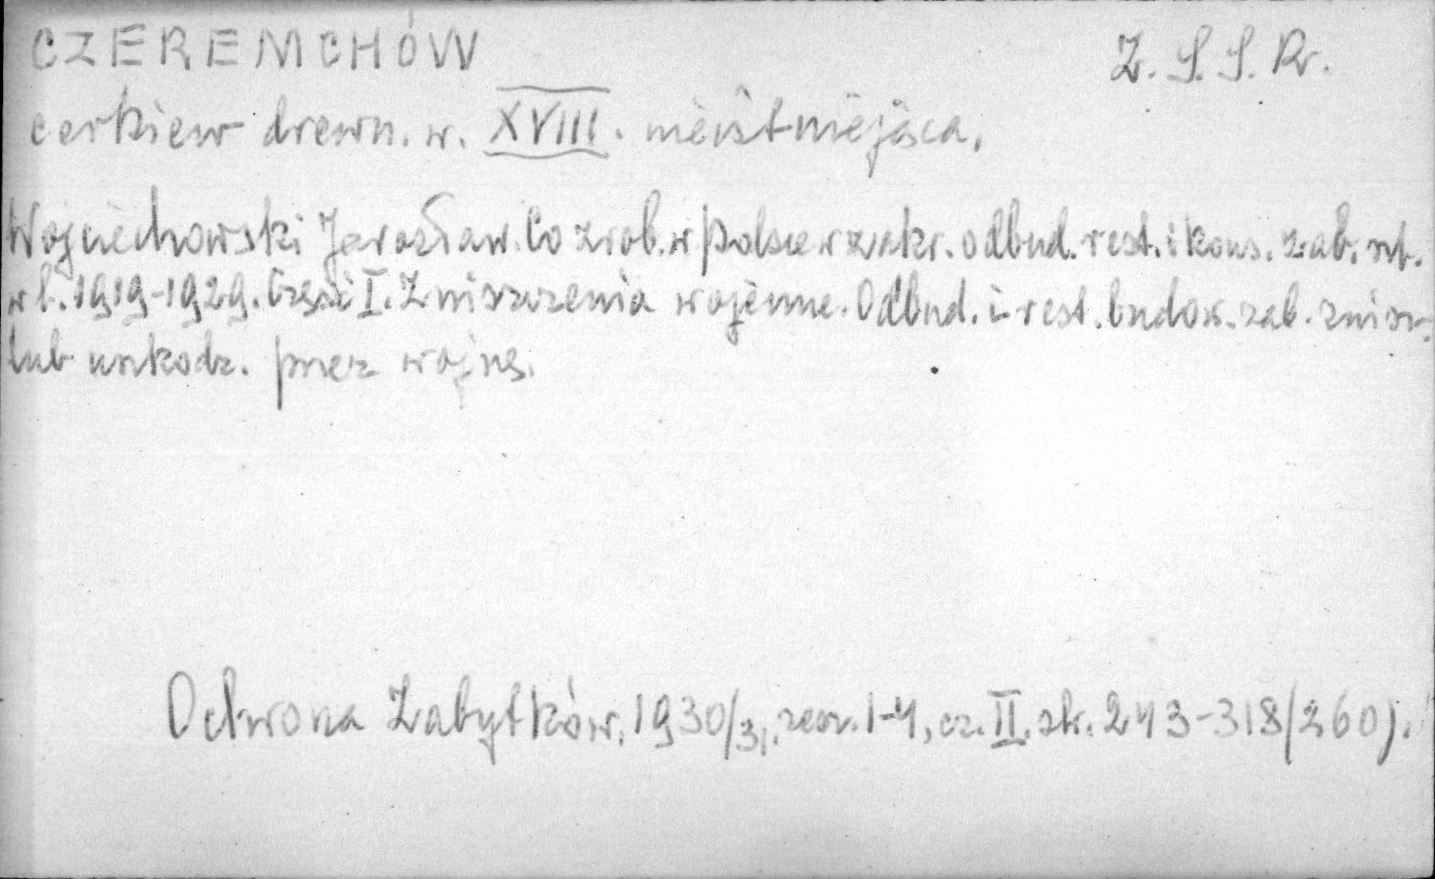 CZEREMCHÓW Z.S.S.R.
cerkiew drewn. w. XVIII. nieistniejąca.
Wojciechowski Jarosław. Co zrob. w Polsce w zakr. odbud. rest. i kons. zab. szt.
w l. 1919-1929. Część I. Zniszczenia wojenne. Odbud. i rest. budow. zab. znisz.
lub uszkodz. przez wojnę.
Ochrona Zabytków, 1930/31, zesz. 1-4, cz. II. str. 243-318/260).